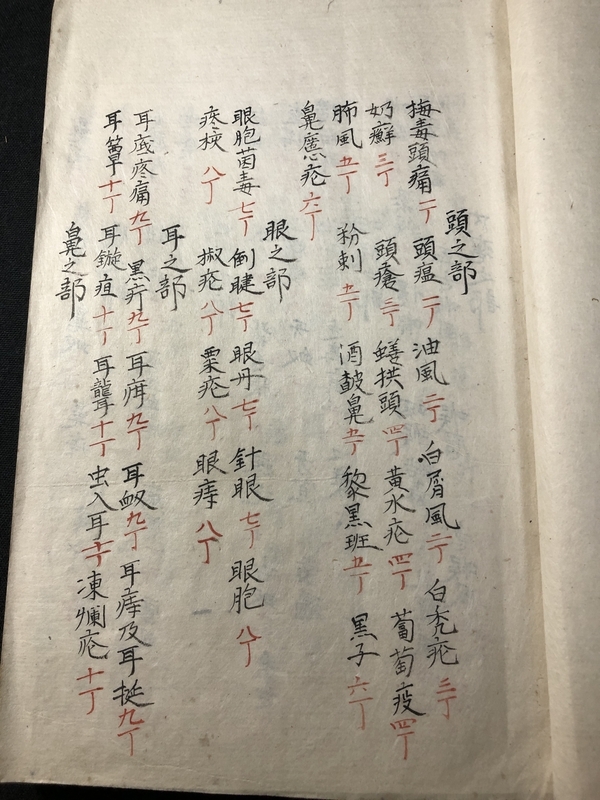 頭之部
梅毒頭痛 一丁 頭瘟 一丁 油風 二丁 白屑風 二丁 白禿疮 三丁
奶癬 三丁 頭瘡 三丁 蟮拱頭 四丁 黃水疮 四丁 葡萄疫 四丁
肺風 五丁 粉刺 五丁 酒皶鼻 五丁 黎黑班 五丁 黑子 六丁
鼻䘌疮 六丁
眼之部
眼胞菌毒 七丁 倒睫 七丁 眼丹 七丁 針眼 七丁 眼胞 八丁
痰核 八丁 椒疮 八丁 粟疮 八丁 眼痔 八丁
耳之部
耳底疼痛 九丁 黑疔 九丁 耳疳 九丁 耳衂 九丁 耳痔及耳挺 九丁
耳 十丁 耳鏇疽 十丁 耳聾 十丁 虫入耳 十丁 凍爛疮 十丁
鼻之部